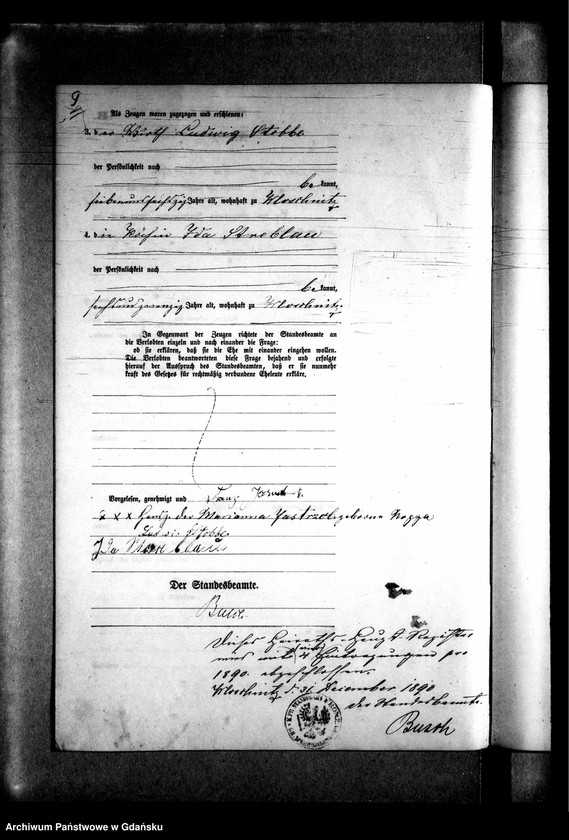 Als Zeugen waren zugezogen und erschienen:
3. der Wirth Ludwig Stobbe
der Persönlichkeit nach
bekannt,
siebenundsechzig Jahre alt, wohnhaft zu Kloschnitz
4. die Köchin Ida Stroblau
der Persönlichkeit nach
bekannt,
sechsundzwanzig Jahre alt, wohnhaft zu Kloschnitz.
In Gegenwart der Zeugen richtete der Standesbeamte an
die Verlobten einzeln und nach einander die Frage:
ob sie erklären, daß sie die Ehe mit einander eingehen wollen.
Die Verlobten beantworteten diese Frage bejahend und erfolgte
hierauf der Ausspruch des Standesbeamten, daß er sie nunmehr
kraft des Gesetzes für rechtmäßig verbundene Eheleute erkläre.
Vorgelesen, genehmigt und
x x x Handz. der Marianna geborene
Ludwig Stobbe
Ida
Der Standesbeamte.
Busch.
Dieses Heiraths-Haupt-Register
wird mit 4 Eintragungen pro
1890 abgeschlossen.
Kloschnitz d. 31 Dezember 1890
der Standesbeamte.
Busch
Archiwum Państwowe w Gdańsku